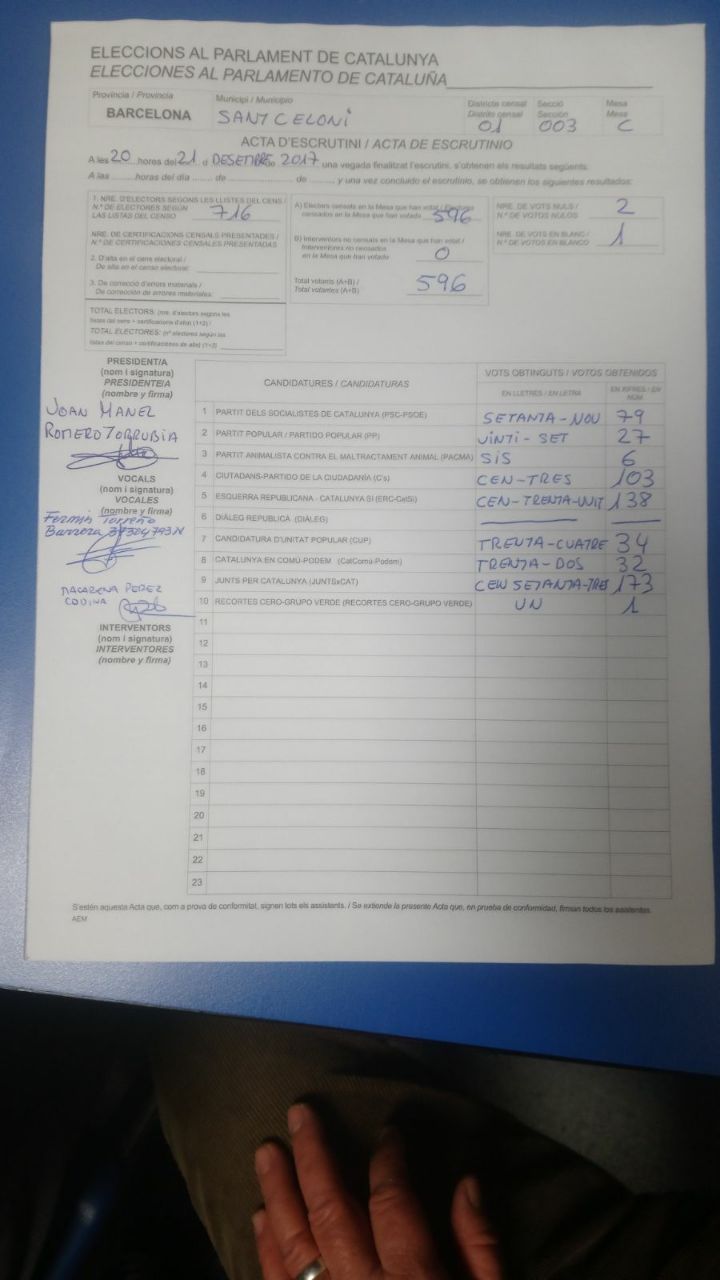 ELECCIONS AL PARLAMENT DE CATALUNYA
ELECCIONES AL PARLAMENTO DE CATALUÑA
Província / Provincia
BARCELONA
Municipi / Municipio
SANT CELONI
Districte censal
Distrito censal
01
Secció
Sección
003
Mesa
Mesa
C
ACTA D'ESCRUTINI / ACTA DE ESCRUTINIO
A les 20 hores del 21 d DESEMBRE de 2017 una vegada finalitzat l'escrutini, s'obtenen els resultats següents:
A las ........ horas del día ....... de ................ de ........., y una vez concluido el escrutinio, se obtienen los siguientes resultados:
1. NRE. D'ELECTORS SEGONS LES LLISTES DEL CENS /
N.º DE ELECTORES SEGÚN
LAS LISTAS DEL CENSO
716
NRE. DE CERTIFICACIONS CENSALS PRESENTADES /
N.º DE CERTIFICACIONES CENSALES PRESENTADAS
2. D'alta en el cens electoral /
De alta en el censo electoral:
3. De correcció d'errors materials /
De corrección de errores materiales:
TOTAL ELECTORS: (nre. d'electors segons les
llistes del cens + certificacions d'alta) (1+2) /
TOTAL ELECTORES: (nº electores según las
listas del censo + certificaciones de alta) (1+2)
A) Electors censats en la Mesa que han votat / Electores
censados en la Mesa que han votado
596
B) Interventors no censats en la Mesa que han votat /
Interventores no censados
en la Mesa que han votado
0
Total votants (A+B) /
Total votantes (A+B)
596
NRE. DE VOTS NULS /
N.º DE VOTOS NULOS
2
NRE. DE VOTS EN BLANC /
N.º DE VOTOS EN BLANCO
1
PRESIDENT/A
(nom i signatura)
PRESIDENTE/A
(nombre y firma)
JOAN MANEL
ROMERO TORRUBIA
VOCALS
(nom i signatura)
VOCALES
(nombre y firma)
Fermin Torreño
Barrera
MACARENA PEREZ
CODINA
INTERVENTORS
(nom i signatura)
INTERVENTORES
(nombre y firma)
CANDIDATURES / CANDIDATURAS
VOTS OBTINGUTS / VOTOS OBTENIDOS
EN LLETRES / EN LETRA
EN XIFRES / EN NÚM
1 PARTIT DELS SOCIALISTES DE CATALUNYA (PSC-PSOE) SETANTA-NOU 79
2 PARTIT POPULAR / PARTIDO POPULAR (PP) VINTI-SET 27
3 PARTIT ANIMALISTA CONTRA EL MALTRACTAMENT ANIMAL (PACMA) SIS 6
4 CIUTADANS-PARTIDO DE LA CIUDADANÍA (C's) CEN-TRES 103
5 ESQUERRA REPUBLICANA - CATALUNYA SÍ (ERC-CatSí) CEN-TRENTA-VUIT 138
6 DIÀLEG REPUBLICÀ (DIÀLEG)
7 CANDIDATURA D'UNITAT POPULAR (CUP) TRENTA-CUATRE 34
8 CATALUNYA EN COMÚ-PODEM (CatComú-Podem) TRENTA-DOS 32
9 JUNTS PER CATALUNYA (JUNTSxCAT) CEN SETANTA-TRES 173
10 RECORTES CERO-GRUPO VERDE (RECORTES CERO-GRUPO VERDE) UN 1
11
12
13
14
15
16
17
18
19
20
21
22
23
S'estén aquesta Acta que, com a prova de conformitat, signen tots els assistents. / Se extiende la presente Acta que, en prueba de conformidad, firman todos los asistentes.
AEM